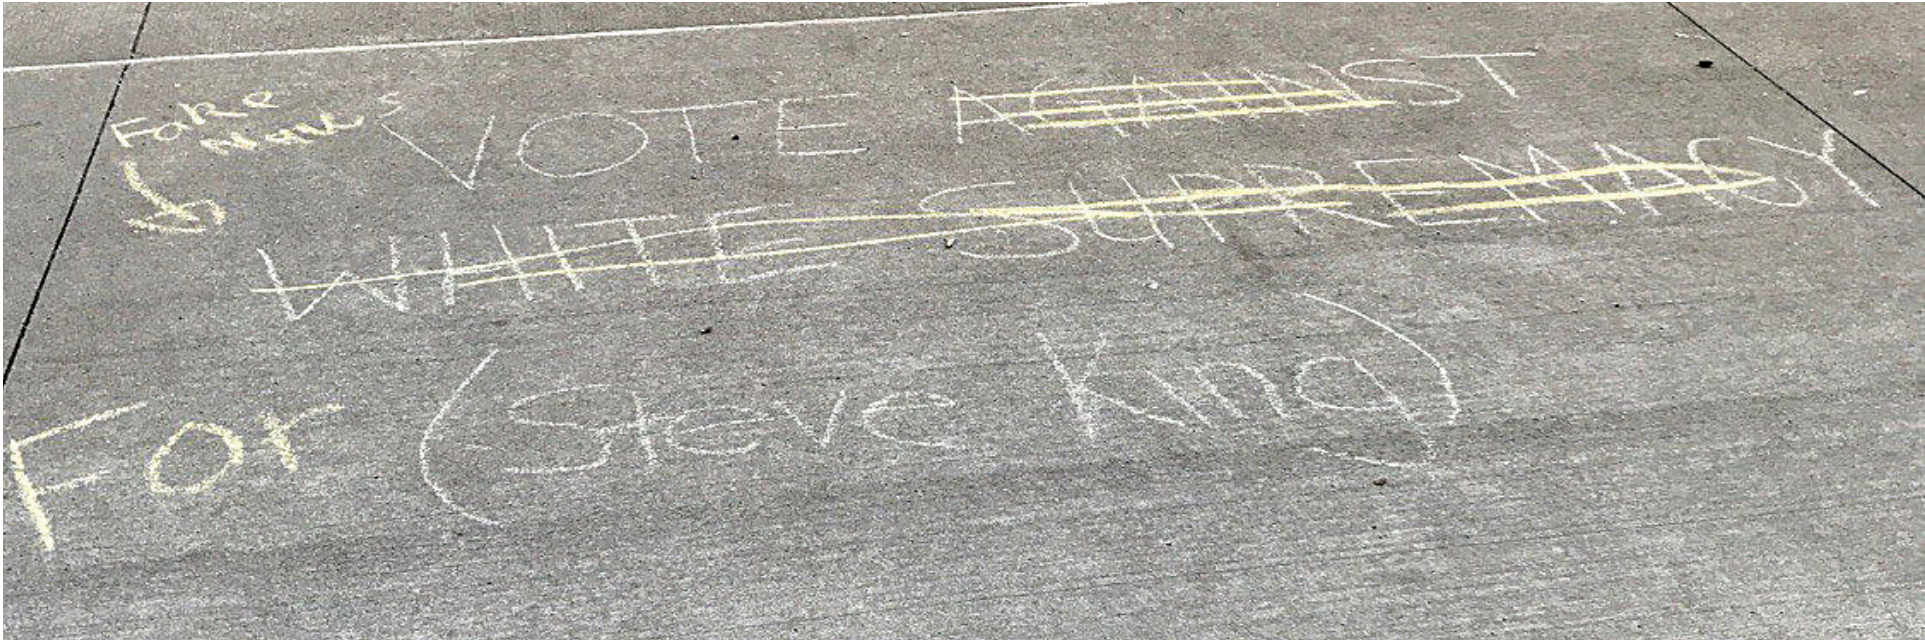 Fake
News
VOTE AGAINST
WHITE SUPREMACY
For (Steve King)